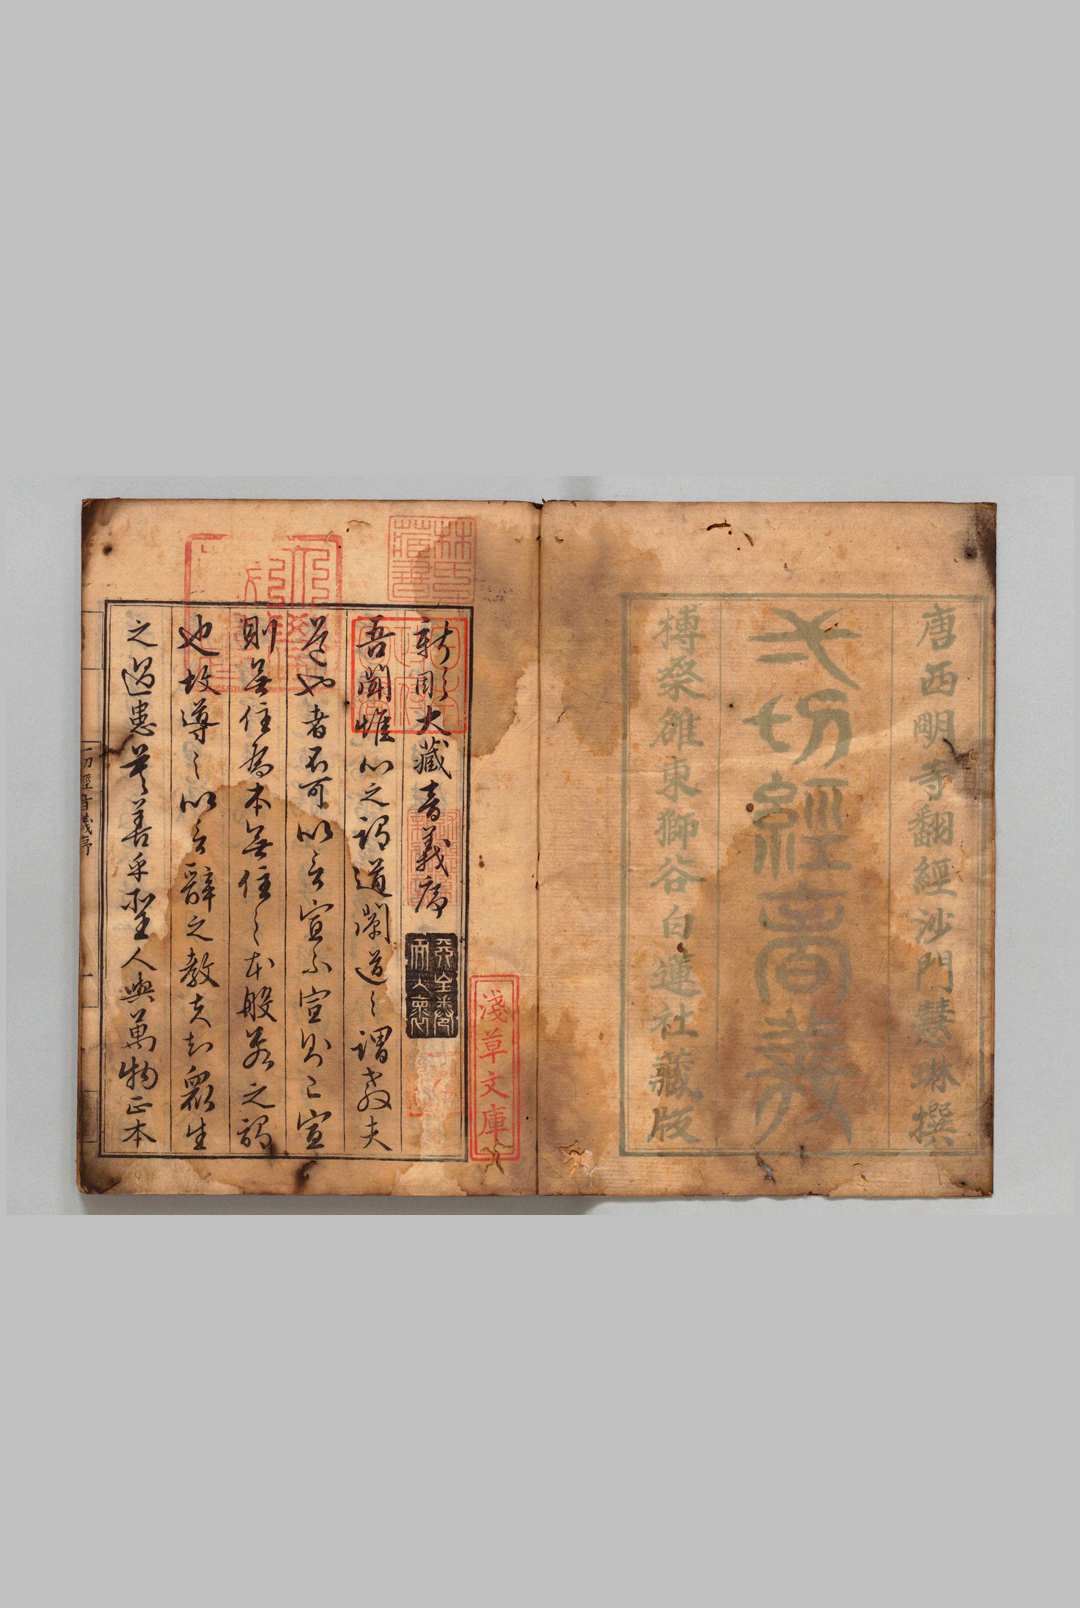 唐西明寺翻經沙門慧琳撰
弌切經音義
槫桑雒東獅谷白蓮社藏版
淺草文庫
新彫大藏音義序
吾聞惟心之謂道闡道之謂教夫
道也者不可以言宣不宣則亡宣
則無住為本無住之本般若之謂
也故導之以言辭之教夫知衆生
之過患莫善乎聖人與萬物正本
一切經音義序